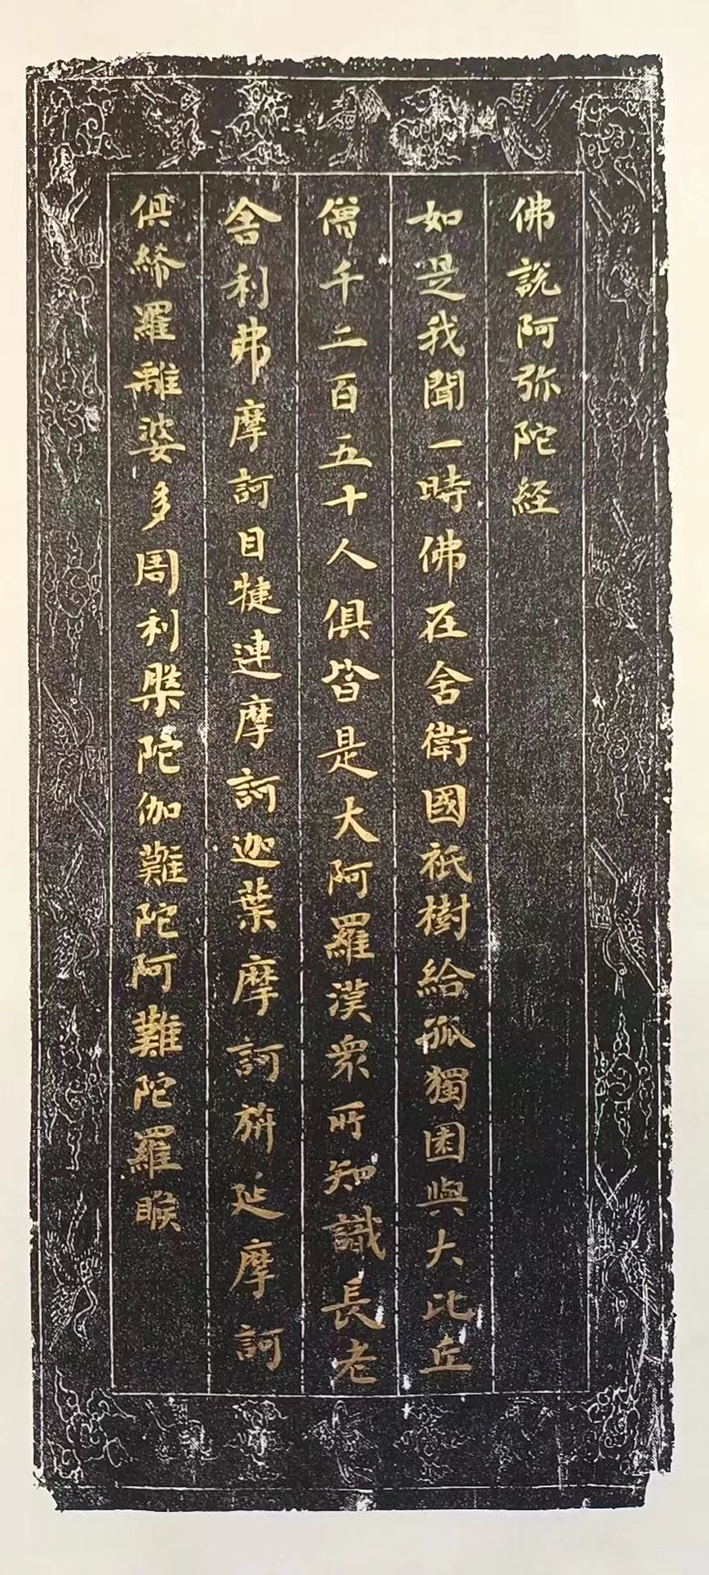 佛說阿弥陀経
如是我聞一時佛在舍衛國祇樹給孤獨园與大比丘
僧千二百五十人俱皆是大阿羅漢衆所知識長老
舍利弗摩訶目犍連摩訶迦葉摩訶旃延摩訶
俱絺羅離婆多周利槃陀伽難陀阿難陀羅睺